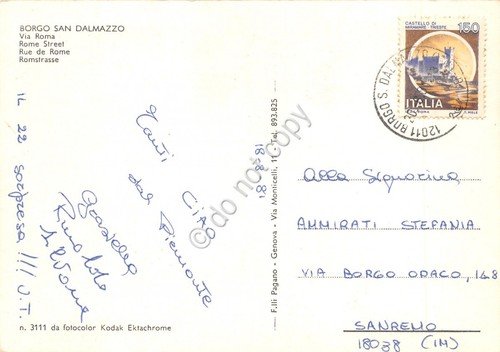 BORGO SAN DALMAZZO
Via Roma
Rome Street
Rue de Rome
Romstrasse
CASTELLO DI
MIRAMARE - TRIESTE
150
ITALIA
12011 BORGO S. DALMAZZO
18-8-81
Tanti
CIAO
dal Piemonte
Graziella
Silvana
IL 22 sorpresa !!! V.T.
n. 3111 da fotocolor Kodak Ektachrome
F.lli Pagano - Genova - Via Monticelli, 11 - Tel. 893.825
Alla Signorina
AMMIRATI STEFANIA
VIA BORGO OPACO, 168
SANREMO
18038 (IM)
do not copy